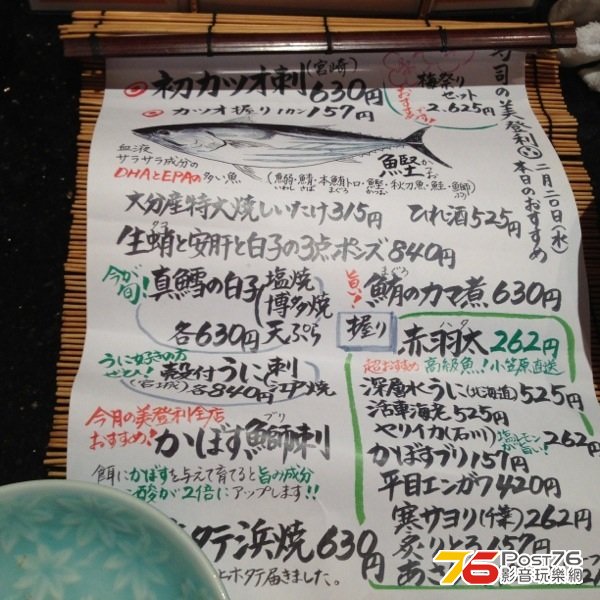 寿司の美登利
二月二〇日(水)
本日のおすすめ
初カツオ刺(宮崎)630円
カツオ握り1カン157円
梅祭り
セット
2.625円
おすすめです!
血液
サラサラ成分の
DHAとEPAの多い魚
鰹
かつお
(鰯・鯖・本鮪トロ・鰹・秋刀魚・鮭・鰤)
いわし さば まぐろ かつお ぶり
大分産特大焼しいたけ315円
ひれ酒525円
生蛸と安肝と白子の3点ポンズ840円
今が旬!
真鱈の白子
塩焼
博多焼
天ぷら
各630円
旨い!
まぐろ
鮪のカマ煮630円
うに好きの方
ぜひ!
殻付うに
刺
焼
(宮城)各840円
握り
ハタ
赤羽太262円
超おすすめ 高級魚!小笠原直送
深層水うに(北海道)525円
活車海老525円
ヤリイカ(石川)塩レモンが旨い!262円
かばすブリ157円
平目エンガワ420円
寒サヨリ(千葉)262円
炙りとろ157円
あさ
今月の美登利全店
おすすめ!
ブリ
かぼす鰤刺
餌にかぼすを与えて育てると旨の成分
酸が2倍にアップします!!
タテ浜焼630円
とホタテ届きました。
76 Post76
影音玩樂網